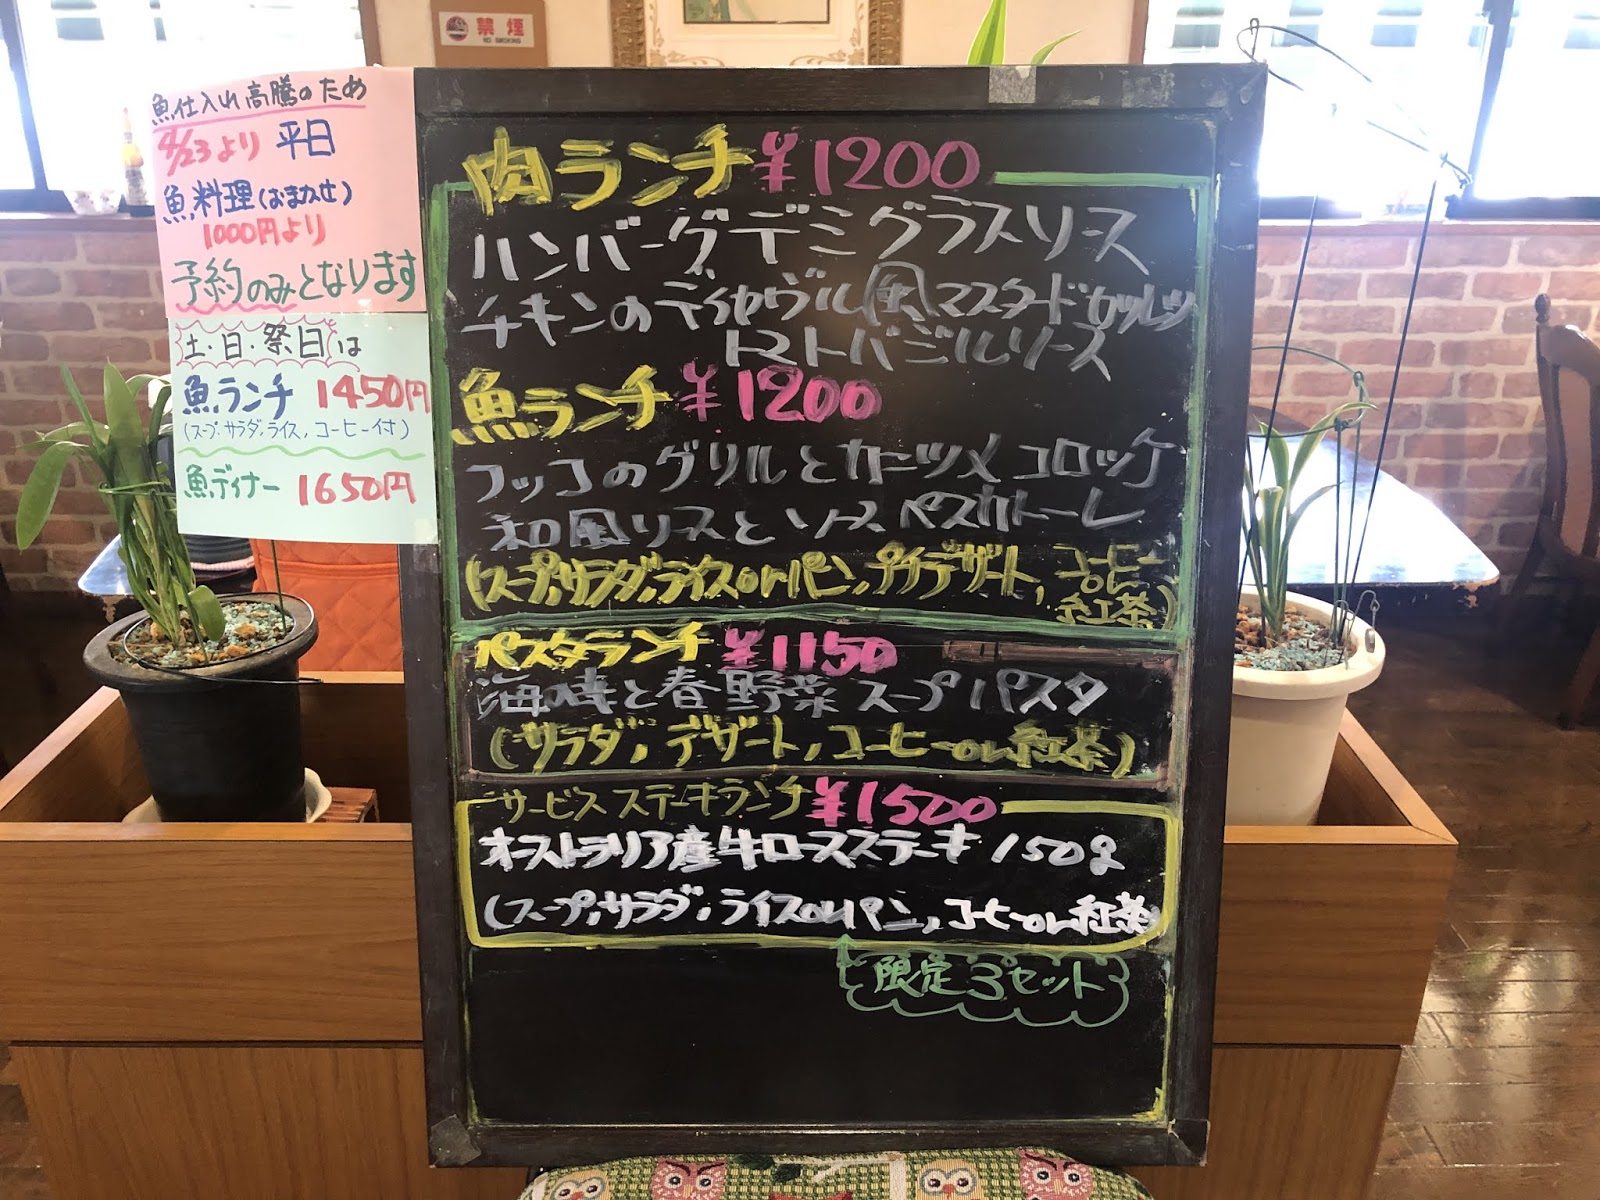 禁煙
NO SMOKING
魚仕入れ高騰のため
4/23より 平日
魚料理(おまかせ)
1000円より
予約のみとなります
土・日・祭日は
魚ランチ 1450円
(スープ、サラダ、ライス、コーヒー付)
魚ディナー 1650円
肉ランチ ¥1200
ハンバーグデミグラスソース
チキンのディヤヴル風マスタードカツレツ
トマトバジルソース
魚ランチ ¥1200
フッコのグリルとカニツメコロッケ
和風ソースとソースペスカトーレ
(スープ,サラダ,ライスorパン,プチデザート,コーヒーor紅茶)
パスタランチ ¥1150
海の幸と春野菜スープパスタ
(サラダ,デザート,コーヒーor紅茶)
サービスステーキランチ ¥1500
オーストラリア産牛ロースステーキ 150g
(スープ,サラダ,ライスorパン,コーヒーor紅茶)
限定3セット